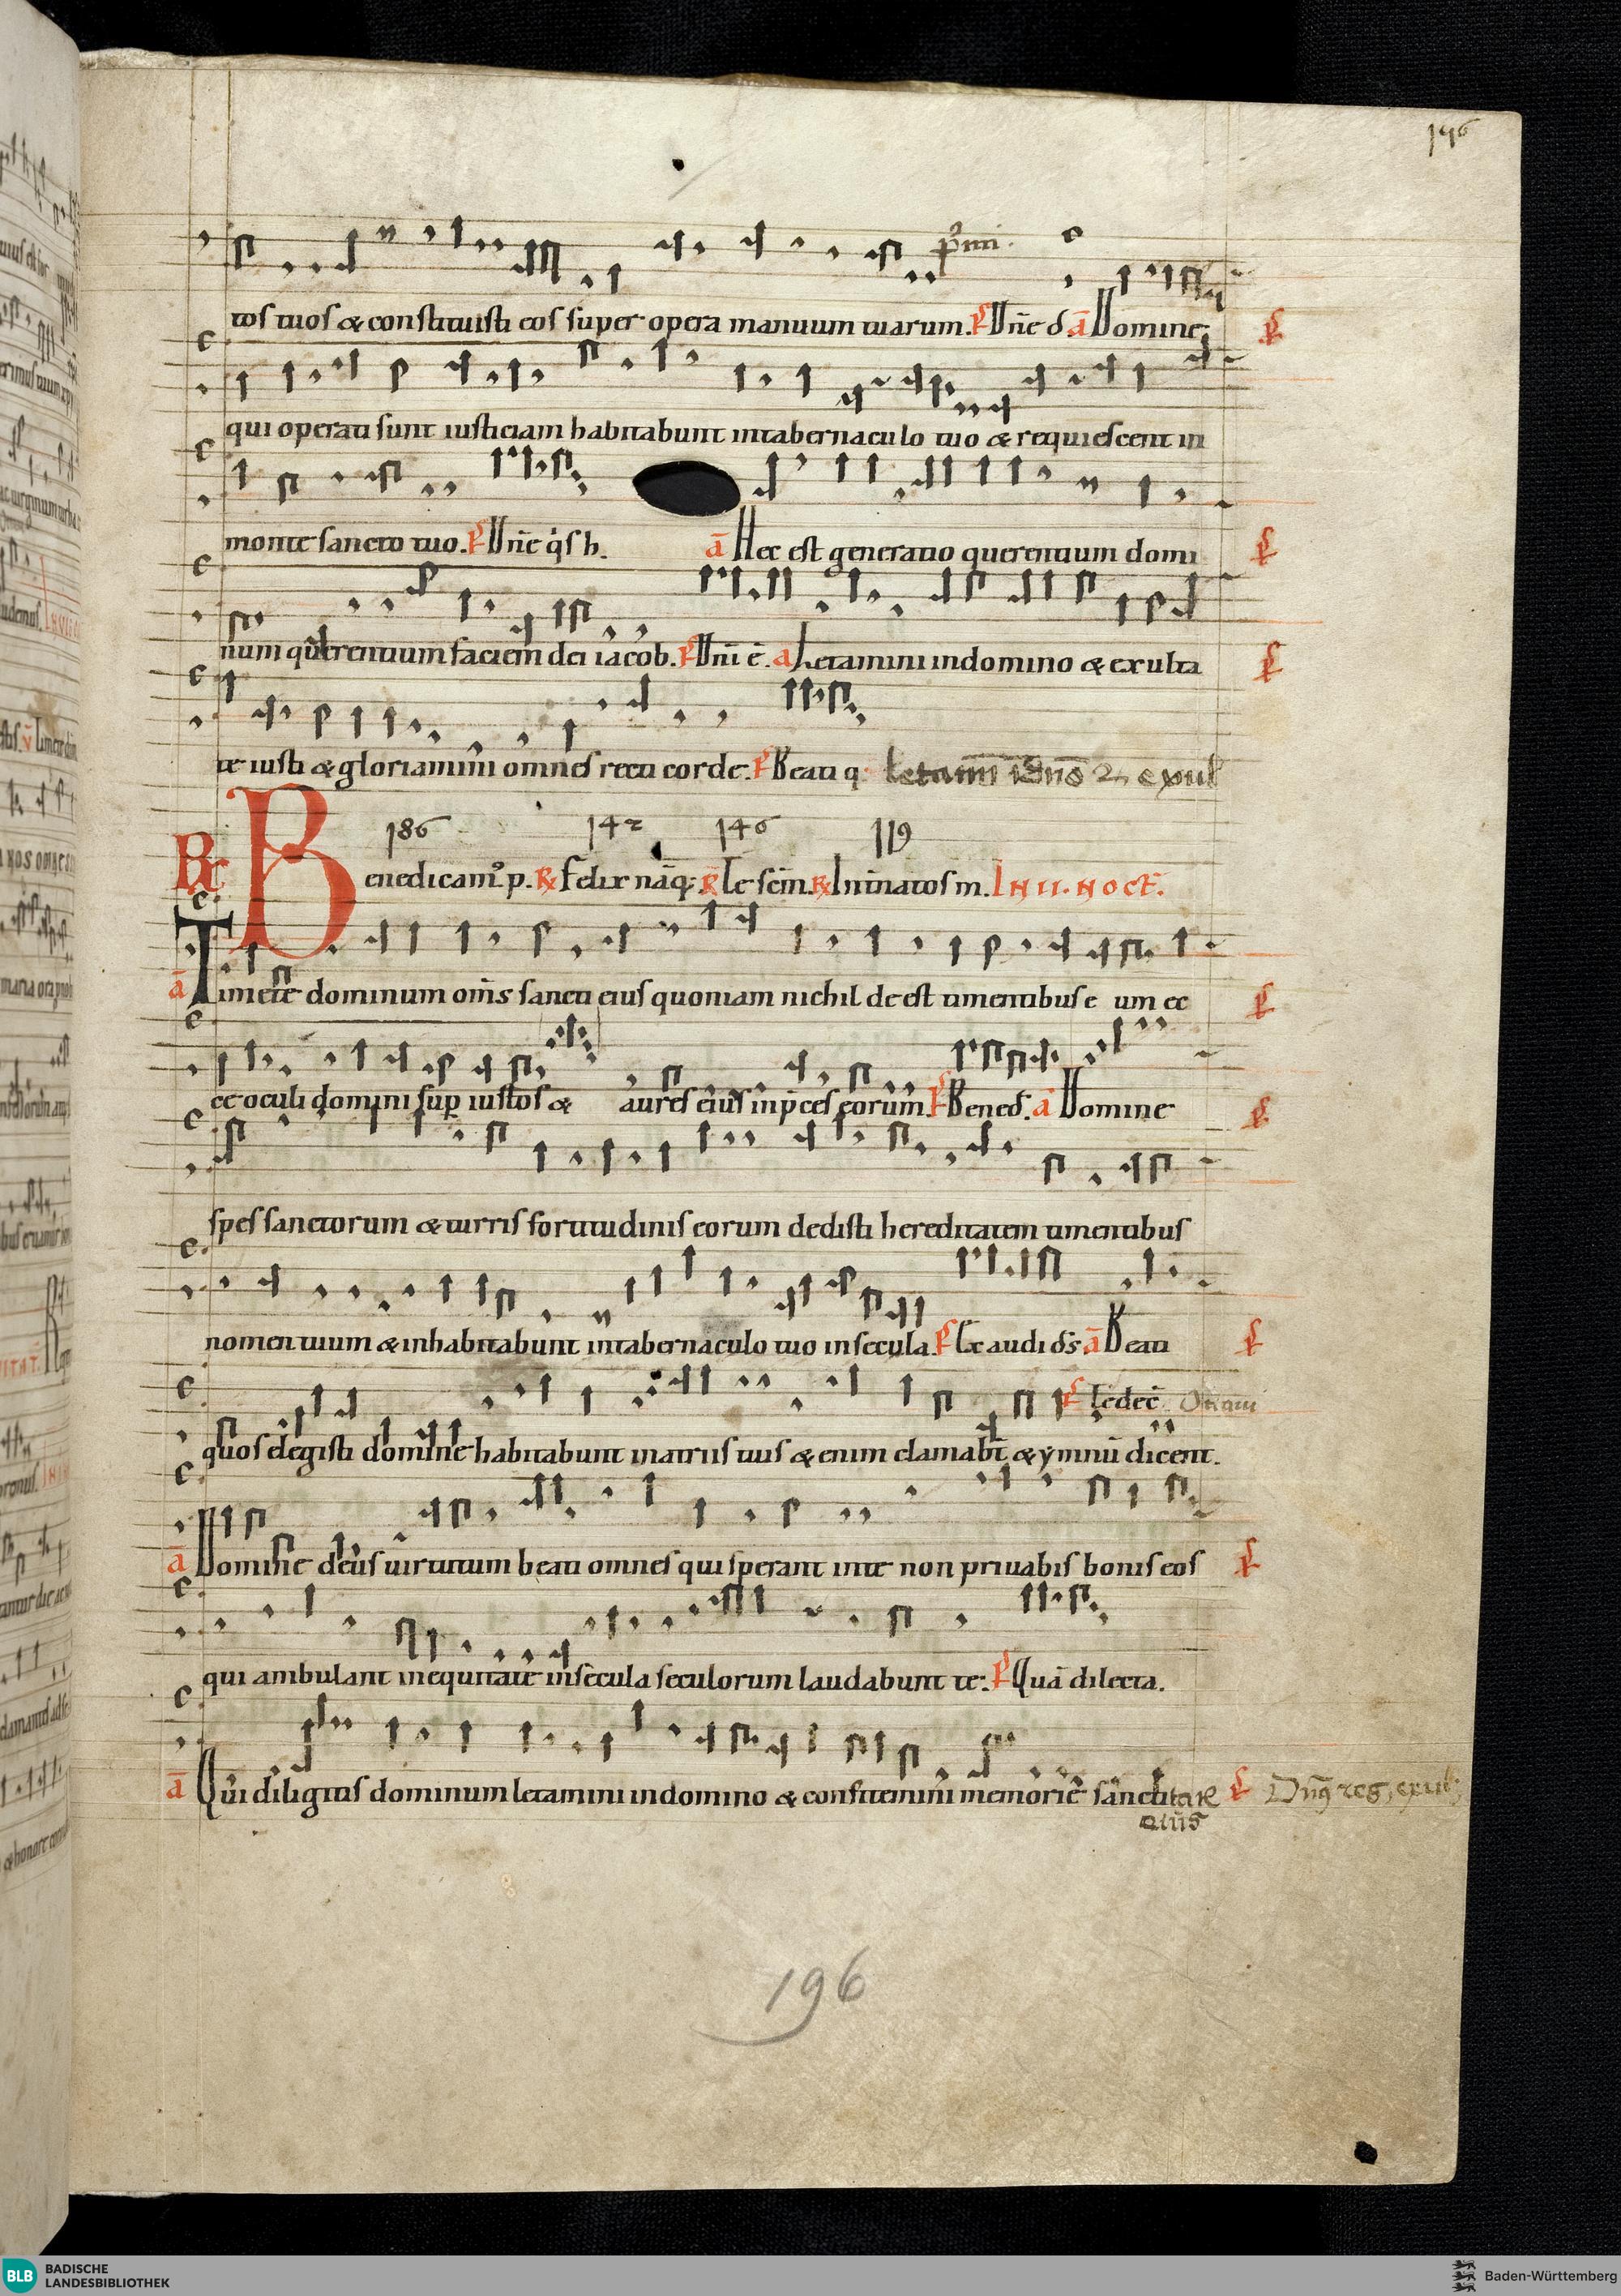 196
tos tuos & constituisti eos super opera manuum tuarum. Dñe d ā Domine
qui operati sunt iusticiam habitabunt intabernaculo tuo & requiescent in
monte sancto tuo. Dñe q̇s h. ā Hec est generatio querentium domi
num querentium faciem dei iacob. Dñi ē. a Letamini indomino & exulta
te iusti & gloriamini omnes recti corde. Beati q.
186 142 146 119
Benedicam⁹ p. felix nāq; In II. Noct.
ā Timete dominum om̄s sancti eius quoniam nichil deest timentibus e um ec
ce oculi domini sup iustos & aures eius in p̄ces eorum. Bened. ā Domine
spes sanctorum & turris fortitudinis eorum dedisti hereditatem timentibus
nomen tuum & inhabitabunt intabernaculo tuo insecula. Exaudi ds. ā Beati
Te dec̄
quos elegisti domine habitabunt inatriis tuis & enim clamabt̄ & ymnū dicent.
ā Domine deus uirtutum beati omnes qui sperant inte non priuabis bonis eos
qui ambulant inequitate insecula seculorum laudabunt te. Quā dilecta.
ā Qui diligitis dominum letamini indomino & confitemini memorie sanctitatis
eius
196
BLB BADISCHE LANDESBIBLIOTHEK
Baden-Württemberg